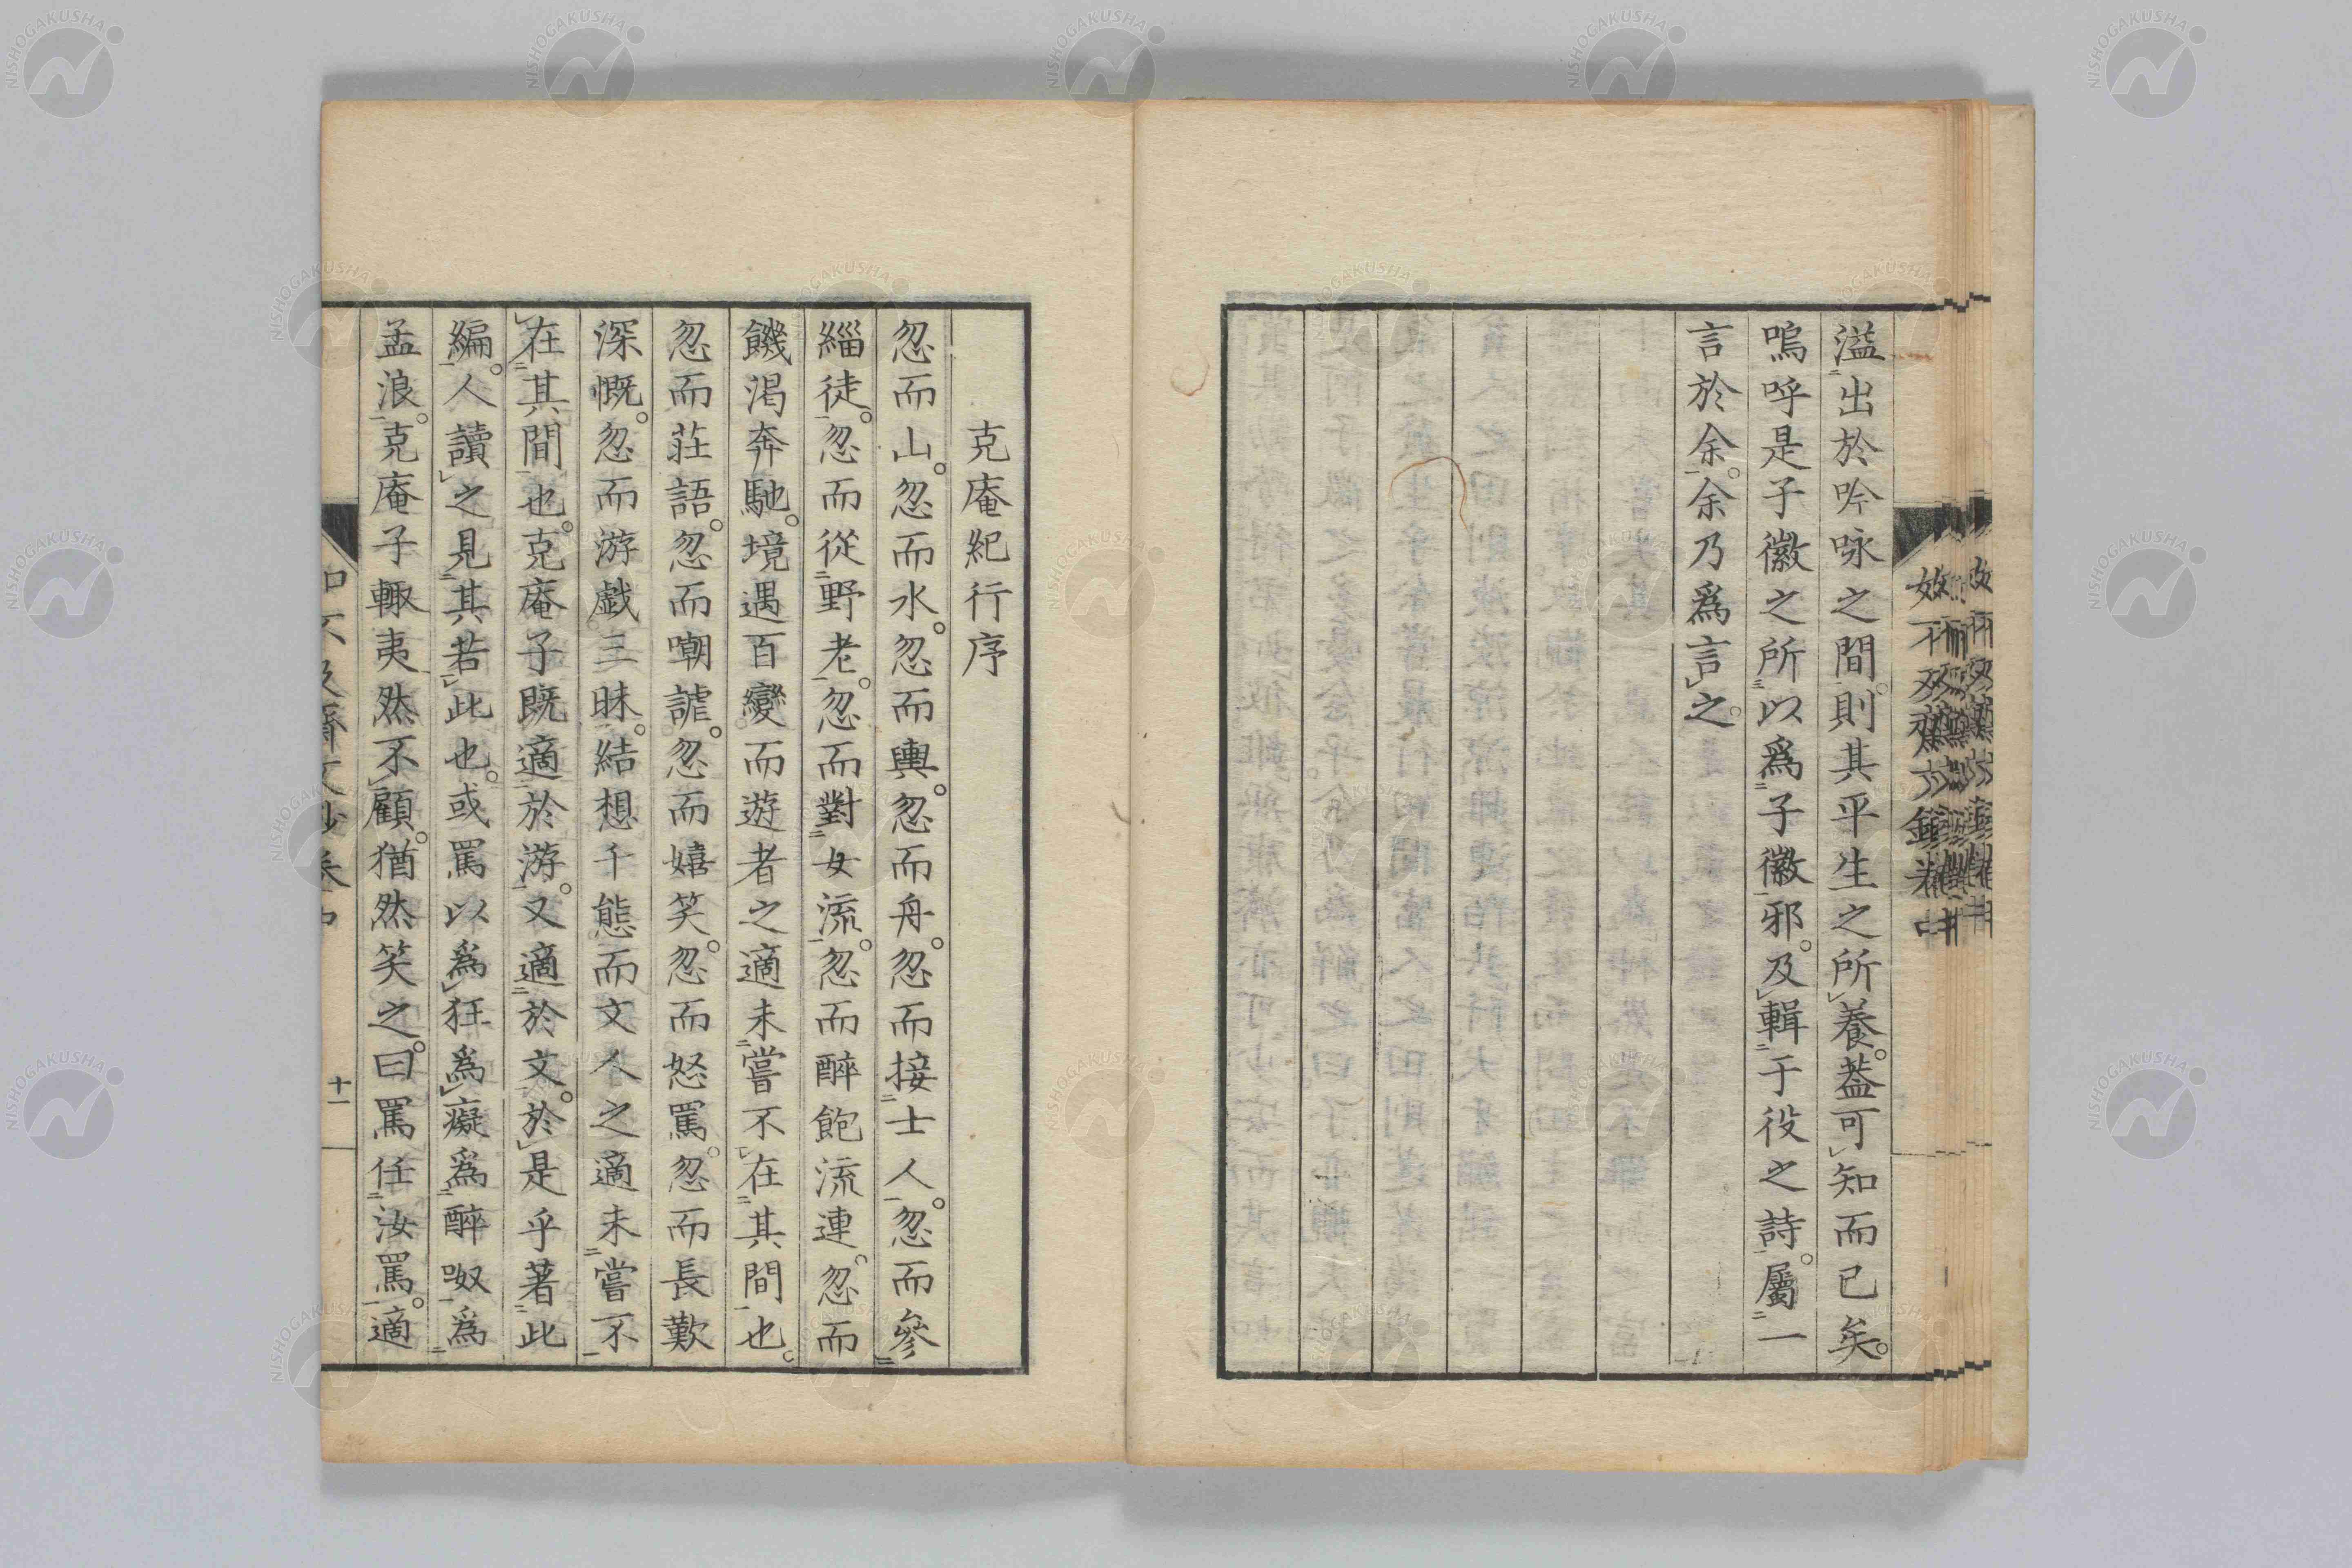 溢出於吟咏之間。則其平生之所養。葢可知而已矣。
嗚呼是子徽之所以爲子徽邪。及輯于役之詩。屬一
言於余。余乃爲言之。
克庵紀行序
忽而山。忽而水。忽而輿。忽而舟。忽而接士人。忽而參
緇徒。忽而從野老。忽而對女流。忽而醉飽流連。忽而
饑渇奔馳。境遇百變而遊者之適未嘗不在其間也。
忽而莊語。忽而嘲謔。忽而嬉笑。忽而怒罵。忽而長歎
深慨。忽而游戲三昧。結想千態而文人之適未嘗不
在其間也。克庵子既適於游。又適於文。於是乎著此
編。人讀之見其若此也。或罵以爲狂爲癡爲醉呶爲
孟浪。克庵子輙夷然不顧。猶然笑之。曰罵任汝罵。適
十一
NISHOGAKUSHA